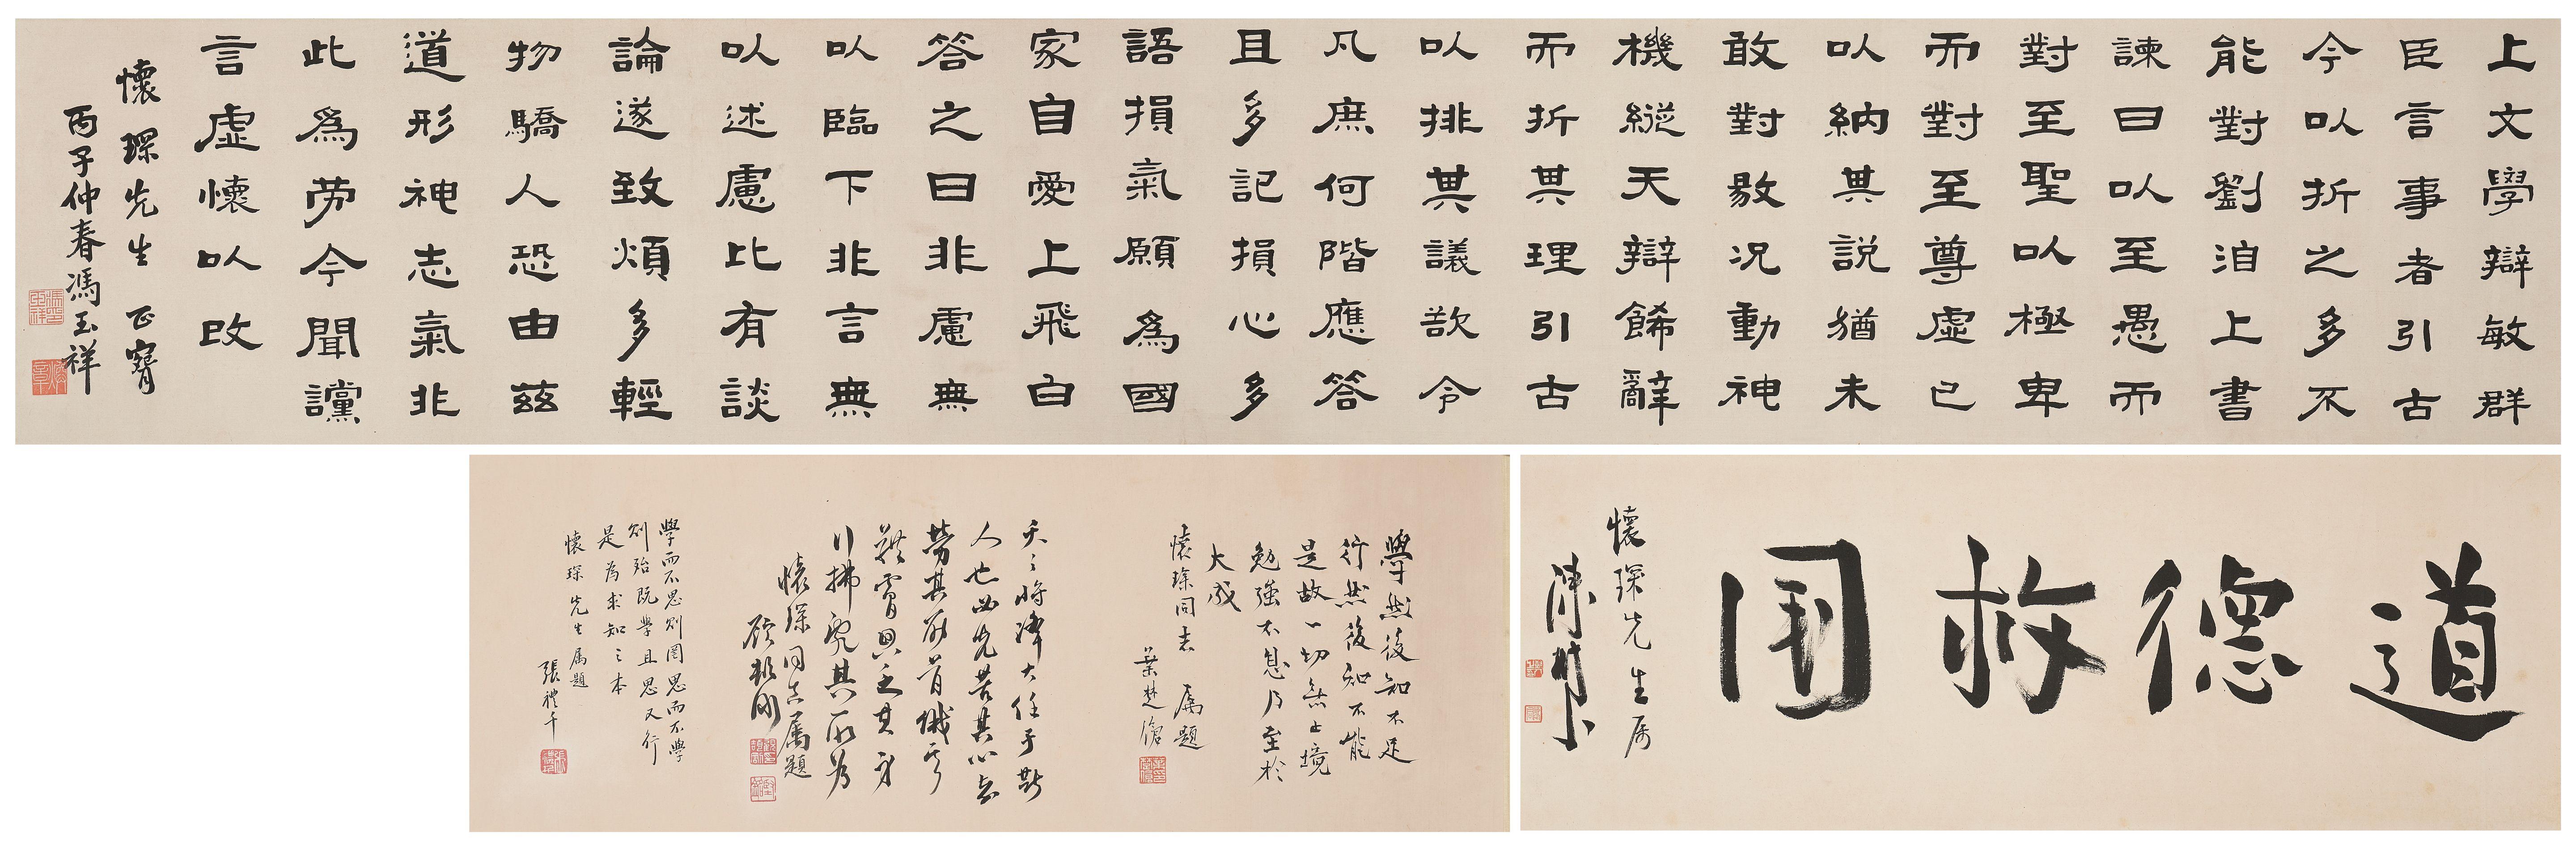 上文學辯敏群
臣言事者引古
今以折之多不
能對劉洎上書
諫曰以至愚而
對至聖以極卑
而對至尊虛已
以納其説猶未
敢對敭況動神
機縱天辯餙辭
而折其理引古
以排其議欲令
凡庶何階應答
且多記損心多
語損氣願爲國
家自愛上飛白
答之曰非慮無
以臨下非言無
以述慮比有談
論遂致煩多輕
物驕人恐由茲
道形神志氣非
此爲勞今聞讜
言虛懷以改
懷琛先生 正
丙子仲春馮玉祥
道德救国
懷琛先生属
陳樹人
學然後知不足
行然後知不能
是故一切無止境
勉強不息乃至於
大成
懷琛同志 属題
葉楚傖
天之將降大任于斯
人也必先苦其心志
勞其筋骨餓其
體膚空乏其身
行拂亂其所為
懷琛同志属題
顧頡剛
學而不思則罔思而不學
則殆既學且思又行
是為求知之本
懷琛先生属題
張禮千